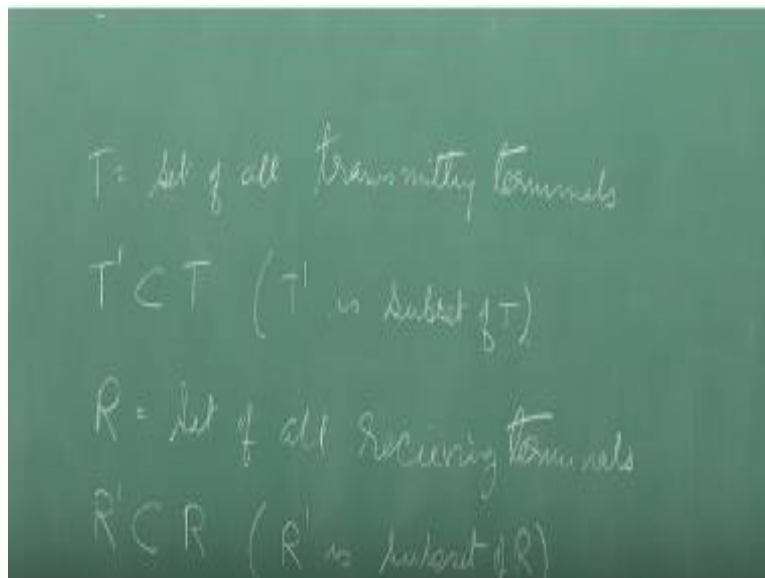 T = Set of all transmitting terminals
T' ⊂ T (T' is subset of T)
R = Set of all recieving terminals
R' ⊂ R (R' is subset of R)